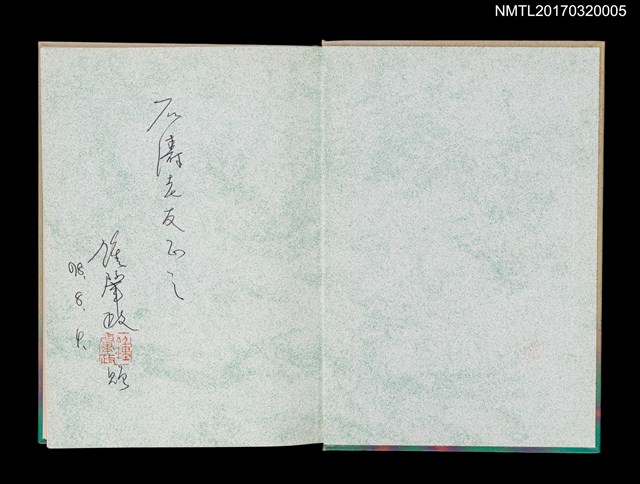 NMTL20170320005
石濤老友正之
鍾肇政
98.8.4.